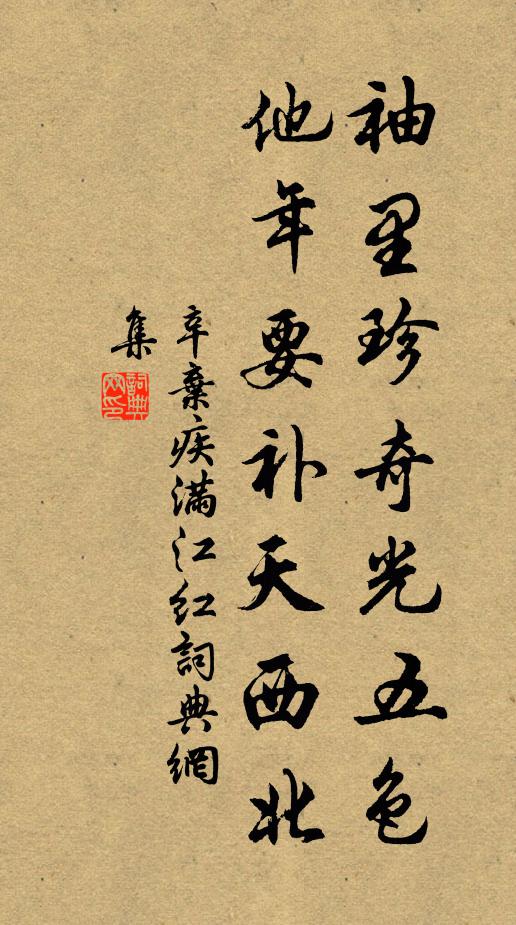 袖里珍奇光五色
他年要补天西北
辛棄疾滿江红詞典網
集
詞典
网印